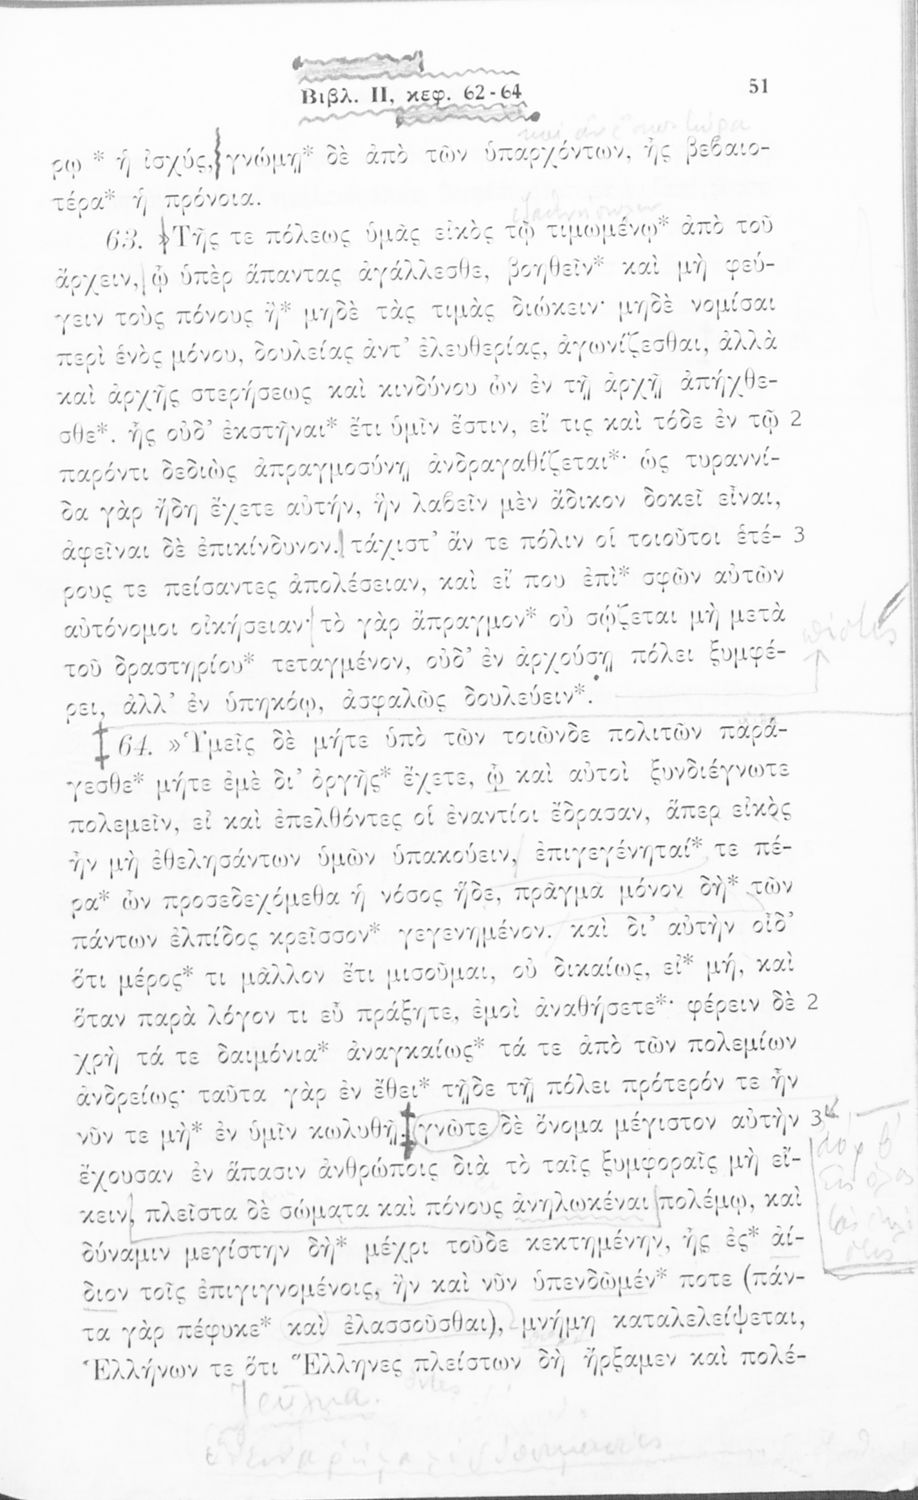 Βιβλ. II, κεφ. 62-64
51
ρῳ * ἡ ἰσχύς, γνώμῃ* δὲ ἀπὸ τῶν ὑπαρχόντων, ἧς βεβαιο-
τέρα* ἡ πρόνοια.
63. »Τῆς τε πόλεως ὑμᾶς εἰκὸς τῷ τιμωμένῳ* ἀπὸ τοῦ
ἄρχειν, ᾧ ὑπὲρ ἅπαντας ἀγάλλεσθε, βοηθεῖν* καὶ μὴ φεύ-
γειν τοὺς πόνους ἢ* μηδὲ τὰς τιμὰς διώκειν· μηδὲ νομίσαι
περὶ ἑνὸς μόνου, δουλείας ἀντ' ἐλευθερίας, ἀγωνίζεσθαι, ἀλλὰ
καὶ ἀρχῆς στερήσεως καὶ κινδύνου ὧν ἐν τῇ ἀρχῇ ἀπήχθε-
σθε*. ἧς οὐδ' ἐκστῆναι* ἔτι ὑμῖν ἔστιν, εἴ τις καὶ τόδε ἐν τῷ 2
παρόντι δεδιὼς ἀπραγμοσύνῃ ἀνδραγαθίζεται*· ὡς τυραννί-
δα γὰρ ἤδη ἔχετε αὐτήν, ἣν λαβεῖν μὲν ἄδικον δοκεῖ εἶναι,
ἀφεῖναι δὲ ἐπικίνδυνον. τάχιστ' ἄν τε πόλιν οἱ τοιοῦτοι ἑτέ- 3
ρους τε πείσαντες ἀπολέσειαν, καὶ εἴ που ἐπὶ* σφῶν αὐτῶν
αὐτόνομοι οἰκήσειαν· τὸ γὰρ ἄπραγμον* οὐ σῴζεται μὴ μετὰ
τοῦ δραστηρίου* τεταγμένον, οὐδ' ἐν ἀρχούσῃ πόλει ξυμφέ-
ρει, ἀλλ' ἐν ὑπηκόῳ, ἀσφαλῶς δουλεύειν*.
64. »Ὑμεῖς δὲ μήτε ὑπὸ τῶν τοιῶνδε πολιτῶν παρά-
γεσθε* μήτε ἐμὲ δι' ὀργῆς* ἔχετε, ᾧ καὶ αὐτοὶ ξυνδιέγνωτε
πολεμεῖν, εἰ καὶ ἐπελθόντες οἱ ἐναντίοι ἔδρασαν, ἅπερ εἰκὸς
ἦν μὴ ἐθελησάντων ὑμῶν ὑπακούειν, ἐπιγεγένηταί* τε πέ-
ρα* ὧν προσεδεχόμεθα ἡ νόσος ἥδε, πρᾶγμα μόνον δὴ* τῶν
πάντων ἐλπίδος κρεῖσσον* γεγενημένον. καὶ δι' αὐτὴν οἶδ'
ὅτι μέρος* τι μᾶλλον ἔτι μισοῦμαι, οὐ δικαίως, εἰ* μή, καὶ
ὅταν παρὰ λόγον τι εὖ πράξητε, ἐμοὶ ἀναθήσετε*· φέρειν δὲ 2
χρὴ τά τε δαιμόνια* ἀναγκαίως* τά τε ἀπὸ τῶν πολεμίων
ἀνδρείως· ταῦτα γὰρ ἐν ἔθει* τῇδε τῇ πόλει πρότερόν τε ἦν
νῦν τε μὴ* ἐν ὑμῖν κωλυθῇ. γνῶτε δὲ ὄνομα μέγιστον αὐτὴν 3
ἔχουσαν ἐν ἅπασιν ἀνθρώποις διὰ τὸ ταῖς ξυμφοραῖς μὴ εἴ-
κειν, πλεῖστα δὲ σώματα καὶ πόνους ἀνηλωκέναι πολέμῳ, καὶ
δύναμιν μεγίστην δὴ* μέχρι τοῦδε κεκτημένην, ἧς ἐς* ἀί-
διον τοῖς ἐπιγιγνομένοις, ἢν καὶ νῦν ὑπενδῶμέν* ποτε (πάν-
τα γὰρ πέφυκε* καὶ ἐλασσοῦσθαι), μνήμη καταλελείψεται,
Ἑλλήνων τε ὅτι Ἕλληνες πλείστων δὴ ἤρξαμεν καὶ πολέ-